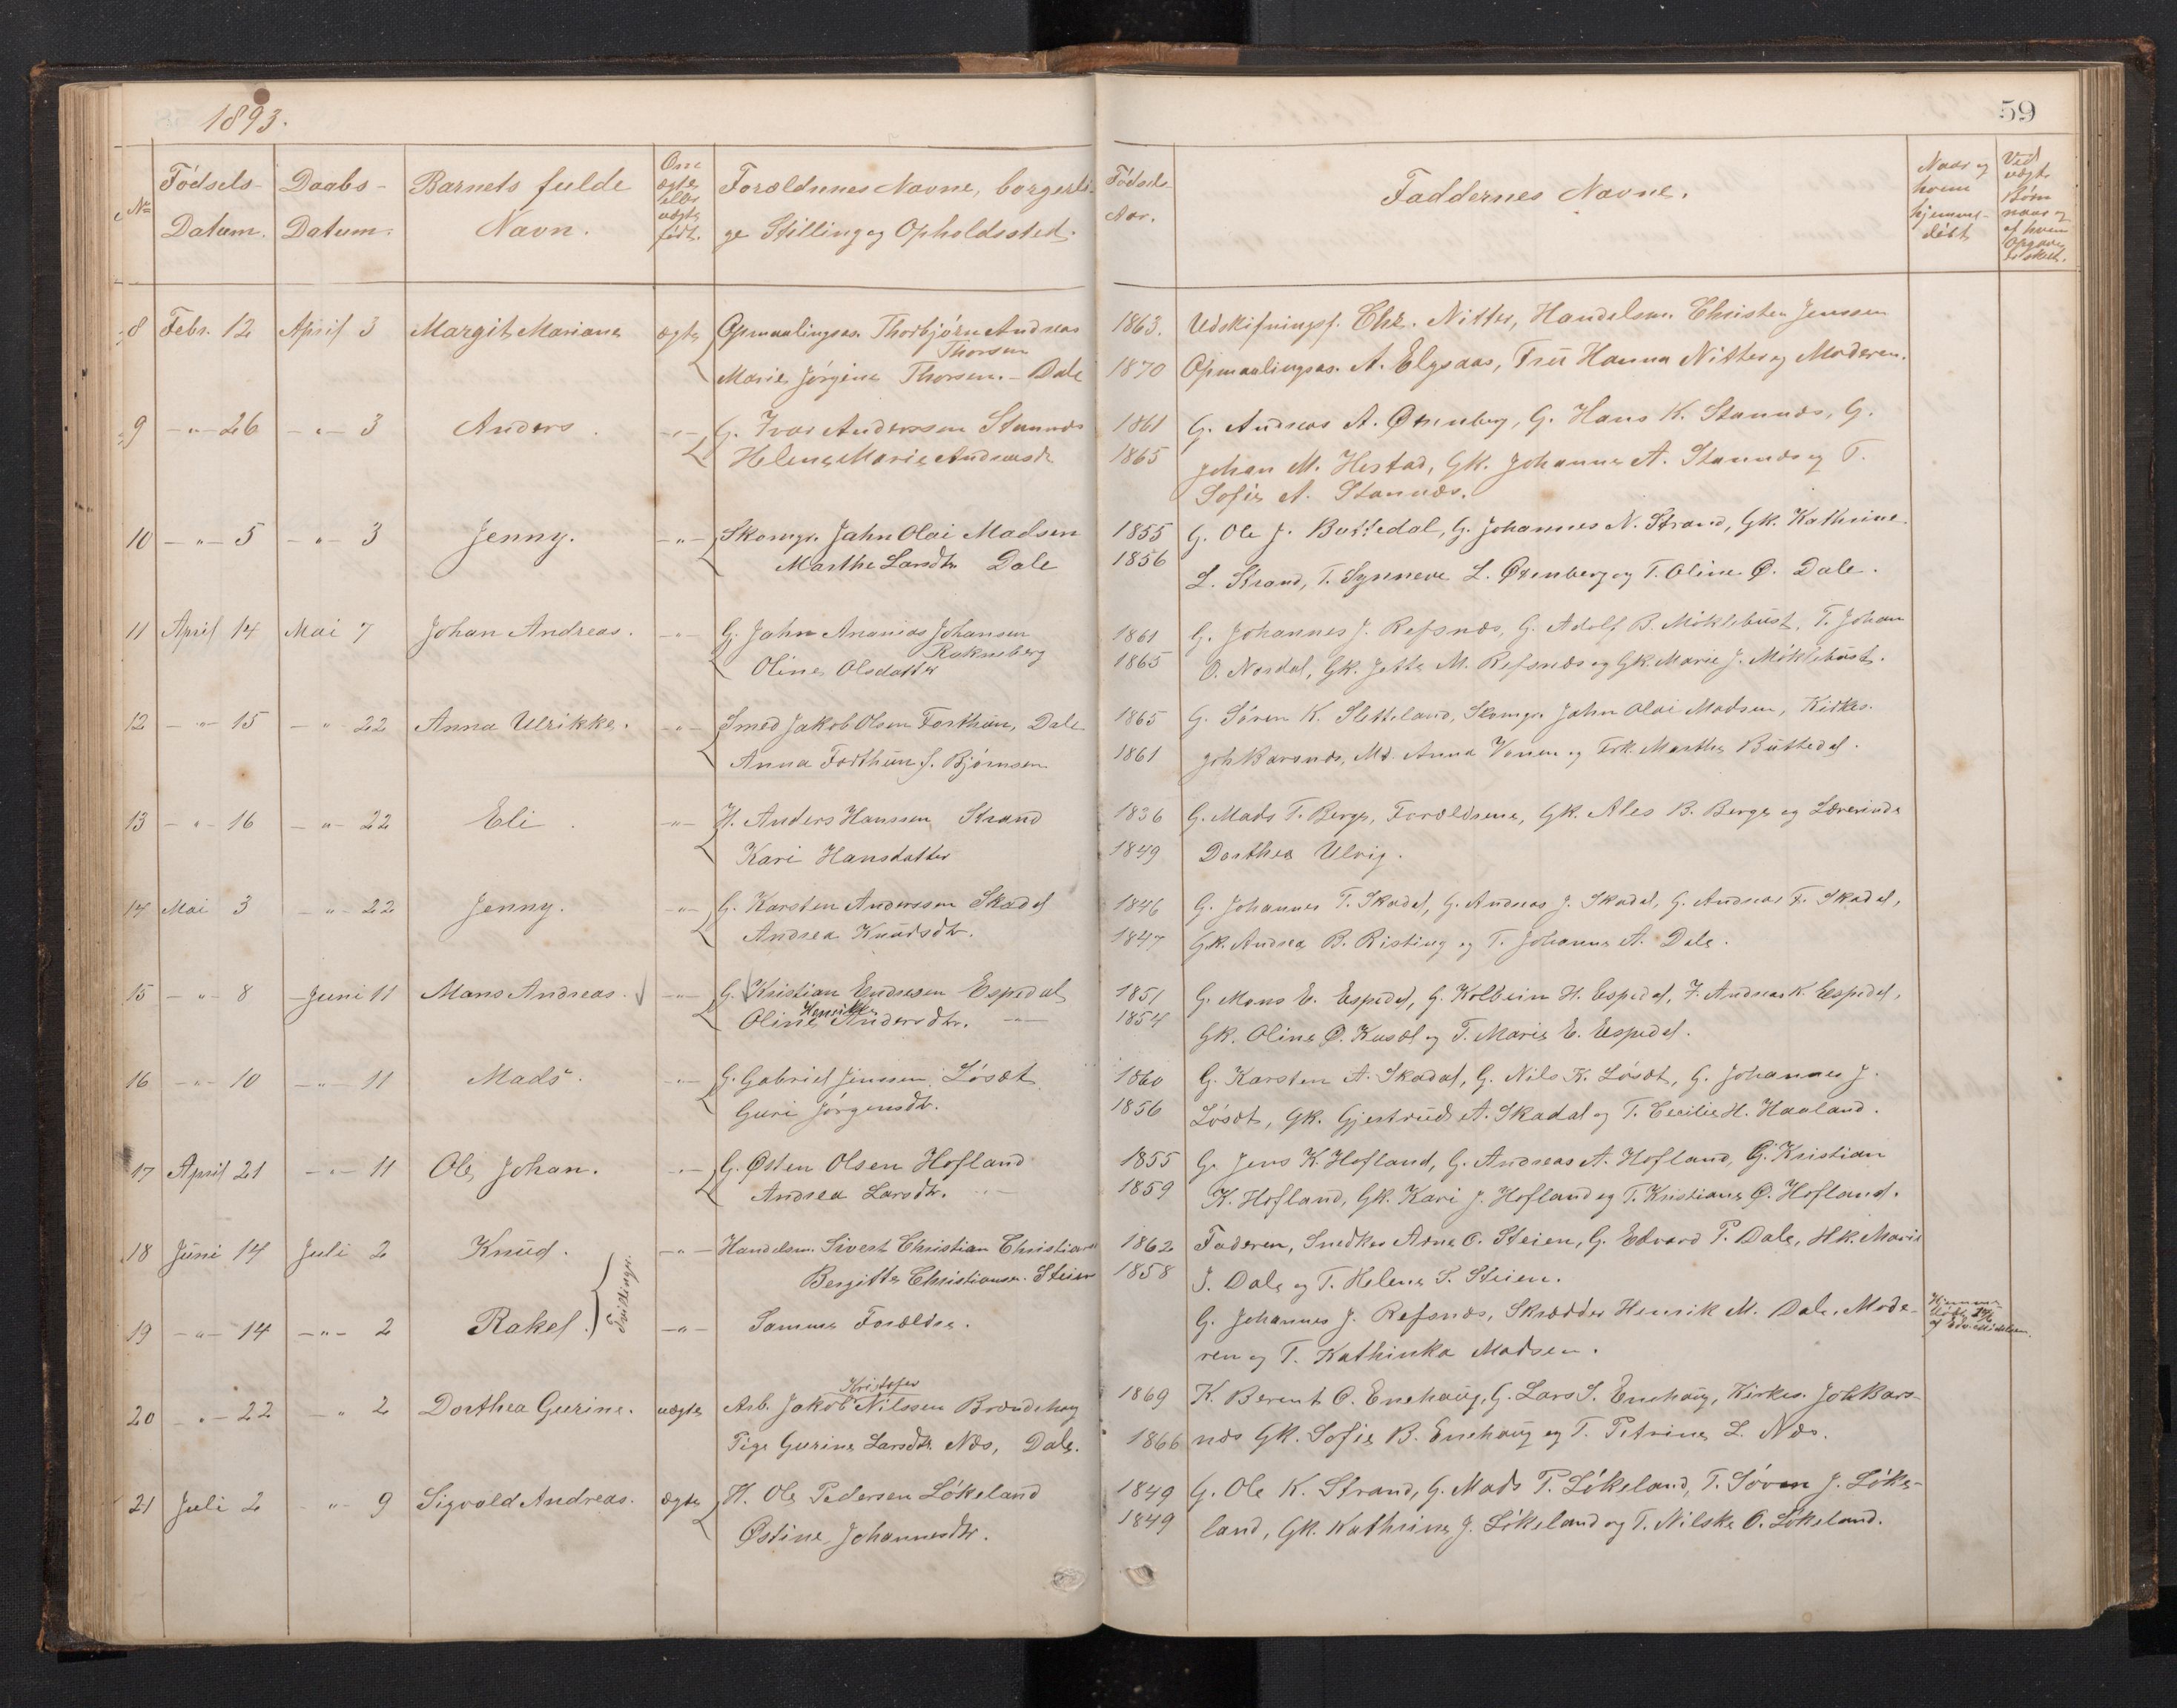 1893.
59
No
Fødsels-
Datum.
Daabs-
Datum.
Barnets fulde
Navn.
Om
ægte
eller
uægte
født.
Forældrenes Navne, borgerli-
ge Stilling og Opholdssted.
Fødsels-
Aar.
Faddernes Navne.
Naar og
hvem
hjemme-
døbt
Ved
uægte
Børn
naar og
af hvem
Opgave
er skeet.
8 Febr. 12 April 3 Margit Mariane ægte Opmaalingsas. Thorbjørn Andreas 1863. Udskiftningsf. Chr. Nitter, Handelsm. Christen Jenssen
Thorsen
Marie Jørgine Thorsen. - Dale 1870 Opmaalingsas. A. Elgsaas, Fru Hanna Nitter og Moderen.
9 -"- 26 -"- 3 Anders. -"- G. Ivar Anderssen Stannæs 1861 G. Andreas A. Øxenberg, G. Hans K. Stannæs, G.
Helene Marie Andreasdtr 1865 Johan M. Hestad, Gk. Johanne A. Stannæs og T.
Sofie A. Stannæs.
10 -"- 5 -"- 3 Jenny. -"- Skomgr. Jahn Olai Madsen 1855 G. Ole J. Buttedal, G. Johannes N. Strand, Gk. Kathrine
Marthe Larsdtr Dale 1856 L. Strand, T. Synneve L. Øxenberg og T. Oline Ø. Dale.
11 April 14 Mai 7 Johan Andreas. -"- G. Jahn Ananias Johansen 1861 G. Johannes J. Refsnæs, G. Adolf B. Miklebust, T. Johan
Rakneberg
Oline Olsdatter 1865 O. Nordal, Gk. Jette M. Refsnæs og Gk. Marie J. Miklebust.
12 -"- 15 -"- 22 Anna Ulrikke. -"- Smed Jakob Olsen Forthun, Dale 1865 G. Søren K. Sletteland, Skomgr. Jahn Olai Madsen, Kirkes.
Anna Forthun f. Bjørnsen 1861 Joh Barsnæs, Md. Anna Vonen og Frk. Marthe Buttedal.
13 -"- 16 -"- 22 Eli. -"- H. Anders Hanssen Strand 1836 G. Mads T. Berge, Forældrene, Gk. Ales B. Berge og Lærerinde
Kari Hansdatter 1849 Dorthea Ulvig.
14 Mai 3 -"- 22 Jenny. -"- G. Karsten Anderssen Skadal 1846 G. Johannes T. Skadal, G. Andreas J. Skadal, G. Andreas F. Skadal,
Andrea Knudsdtr. 1847 Gk. Andrea B. Risting og T. Johanne A. Dale.
15 -"- 8 -Juni 11 Mons Andreas. -"- G. Kristian Endresen Espedal 1851 G. Mons E. Espedal, G. Kolbein H. Espedal, F. Andreas K. Espedal,
Henrikke
Oline Andersdtr. -"- 1854 Gk. Oline Ø. Kusæl og T. Marie E. Espedal.
16 -"- 10 -"- 11 Mads. -"- G. Gabriel Jenssen Løsæt 1860 G. Karsten A. Skadal, G. Nils K. Løsæt, G. Johannes J.
Guri Jørgensdtr. 1856 Løsæt, Gk. Gjertrud A. Skadal og T. Cecilie H. Haaland.
17 April 21 -"- 11 Ole Johan. -"- G. Østen Olsen Hofland 1855 G. Jens K. Hofland, G. Andreas A. Hofland, G. Kristian
Andrea Larsdtr. -"- 1859 K. Hofland, Gk. Kari J. Hofland og T. Kristiane Ø. Hofland.
18 Juni 14 Juli 2 Knud. Tvillinger. -"- Handelsm. Sivert Christian Christiansen 1862 Faderen, Snedker Arne O. Steien, G. Edvard P. Dale, Hk. Marie
Bergitte Christiansen Steien 1858 J. Dale og T. Helene S. Steien.
19 -"- 14 -"- 2 Rakel. -"- Samme Forældre. G. Johannes J. Refsnæs, Skrædder Henrik M. Dale, Mode-
ren og T. Kathinka Madsen.
20 -"- 22 -"- 2 Dorthea Gurine. uægte Arb. Jakob Kristofer Nilssen Brændehaug 1869 K. Berent O. Enehaug, G. Lars S. Enehaug, Kirkes. Joh Bars-
Pige Gurine Larsdtr. Næs, Dale. 1866 næs Gk. Sofie B. Enehaug og T. Petrine L. Næs.
21 Juli 2 -"- 9 Sigvald Andreas. ægte H. Ole Pedersen Løkeland 1849 G. Ole K. Strand, G. Mads P. Løkeland, T. Søren J. Løke-
Østine Johannesdtr. 1849 land, Gk. Kathrine J. Løkeland og T. Nilske O. Løkeland.